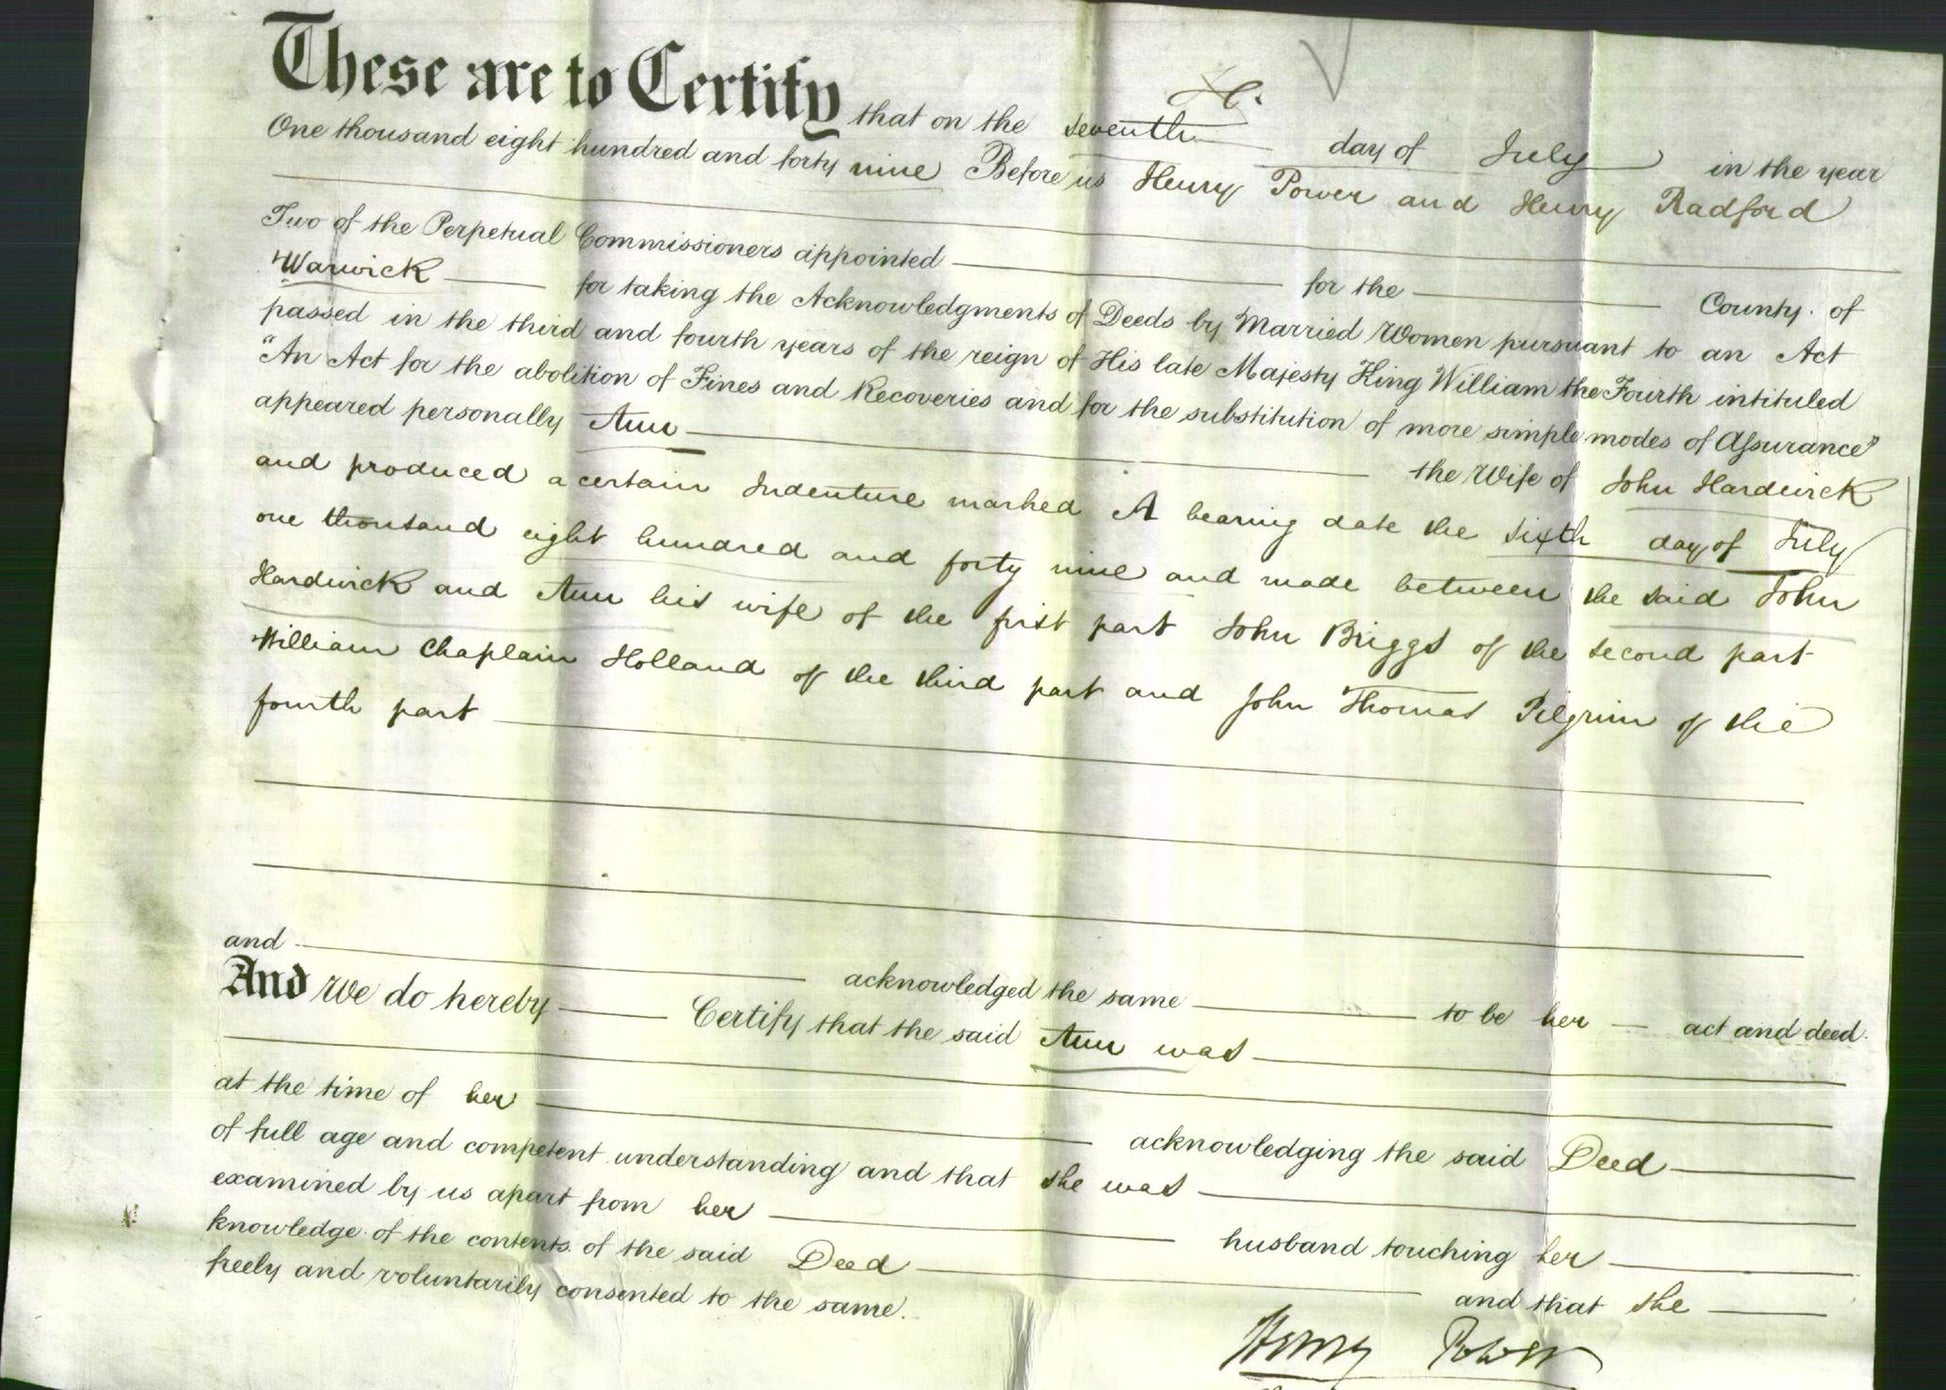 H.
These are to Certify that on the seventh day of July in the year
One thousand eight hundred and forty nine Before us Henry Power and Henry Radford
Two of the Perpetual Commissioners appointed for the County of
Warwick for taking the Acknowledgments of Deeds by Married Women pursuant to an Act
passed in the third and fourth years of the reign of His late Majesty King William the Fourth intituled
"An Act for the abolition of Fines and Recoveries and for the substitution of more simple modes of Assurance"
appeared personally Ann the Wife of John Hardwick
and produced a certain Indenture marked A bearing date the sixth day of July
one thousand eight hundred and forty nine and made between the said John
Hardwick and Ann his wife of the first part John Briggs of the second part
William Chaplain Holland of the third part and John Thomas Pilgrim of the
fourth part
and acknowledged the same to be her act and deed.
And We do hereby Certify that the said Ann was
at the time of her acknowledging the said Deed
of full age and competent understanding and that she was
examined by us apart from her husband touching her
knowledge of the contents of the said Deed and that she
freely and voluntarily consented to the same.
Henry Power